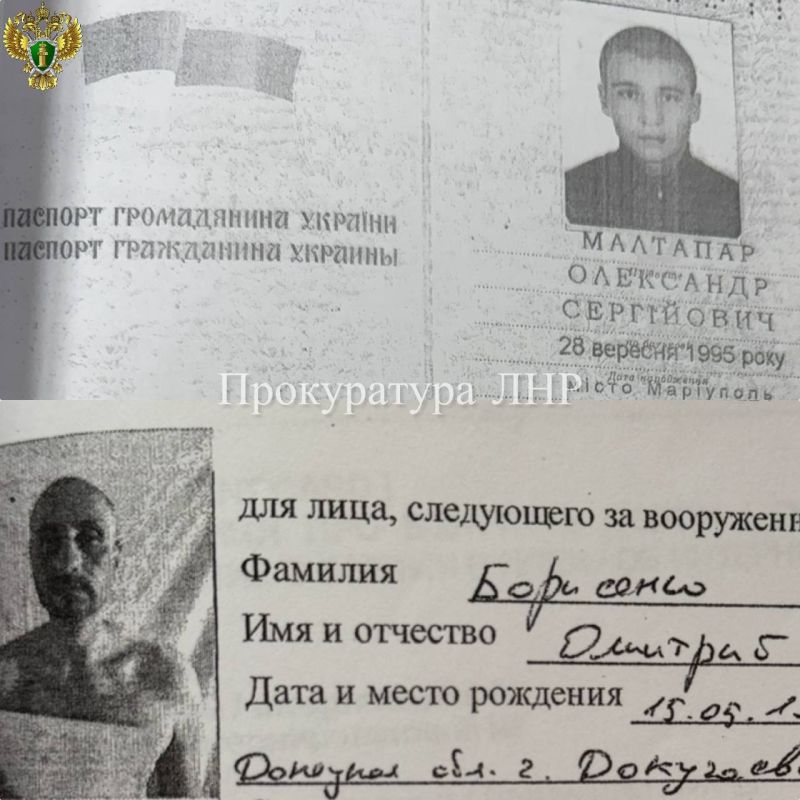 ПАСПОРТ ГРОМАДЯНИНА УКРАЇНИ
ПАСПОРТ ГРАЖДАНИНА УКРАИНЫ
МАЛТАПАР
ОЛЕКСАНДР
СЕРГІЙОВИЧ
28 вересня 1995 року
Дата народження
місто Маріуполь
Прокуратура ЛНР
для лица, следующего за вооруженн
Фамилия Борисенко
Имя и отчество Дмитрий
Дата и место рождения 15.05.1
Донецкая обл. г. Докучаев